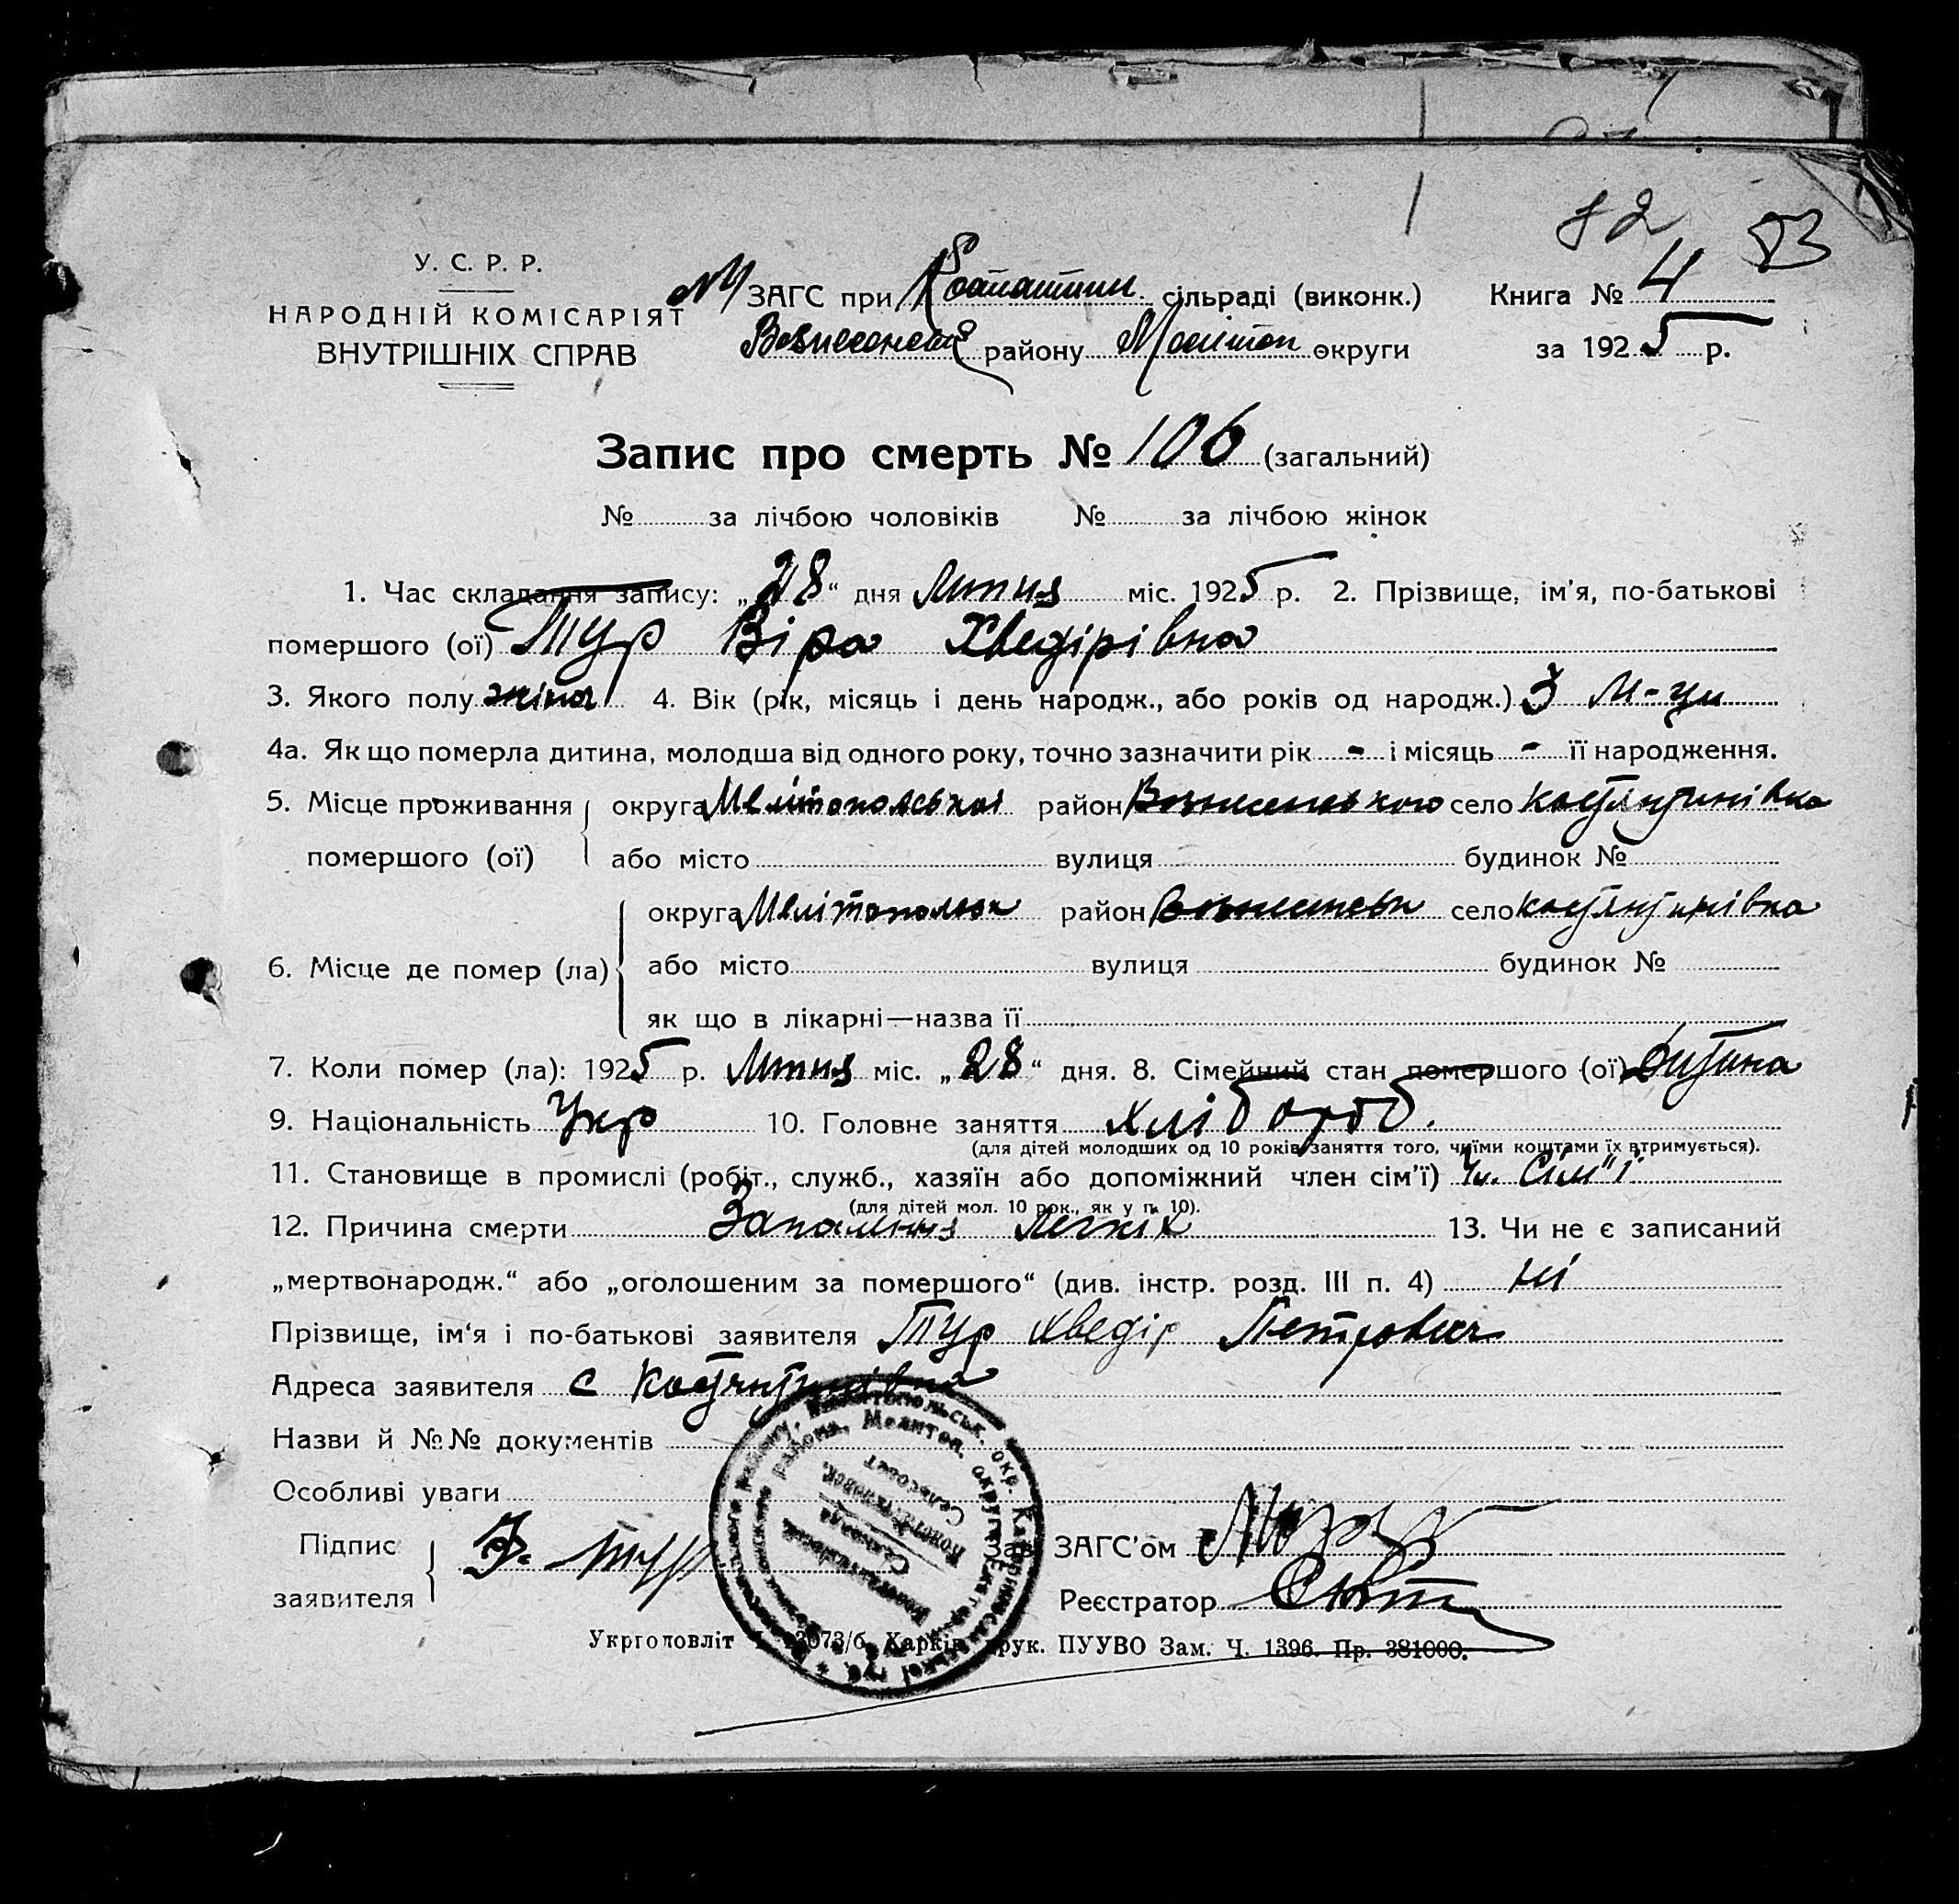 82 83
У. С. Р. Р.
НАРОДНІЙ КОМІСАРІЯТ
ВНУТРІШНІХ СПРАВ
ЗАГС при сільраді (виконк.) Книга № 4
району округи за 1925 р.
Запис про смерть № 106 (загальний)
№ за лічбою чоловіків № за лічбою жінок
1. Час складання запису: „28“ дня Липня міс. 1925 р. 2. Прізвище, ім'я, по-батькові
помершого (ої) Тур Віра Хведірівна
3. Якого полу жіноч 4. Вік (рік, місяць і день народж., або років од народж.) 3 м-ци
4а. Як що померла дитина, молодша від одного року, точно зазначити рік - і місяць - її народження.
5. Місце проживання округа Мелітопольська район Вознесенського село Костянтинівка
помершого (ої) або місто вулиця будинок №
округа район село Костянтинівка
6. Місце де помер (ла) або місто вулиця будинок №
як що в лікарні—назва її
7. Коли помер (ла): 1925 р. Липня міс. „28“ дня. 8. Сімейний стан помершого (ої) Дитина
9. Національність Укр 10. Головне заняття Хлібороб.
(для дітей молодших од 10 років заняття того, чиїми коштами їх втримується).
11. Становище в промислі (робіт., служб., хазяїн або допоміжний член сім'ї) Чл. Сім"ї
(для дітей мол. 10 рок., як у п. 10).
12. Причина смерти Запалення Легких 13. Чи не є записаний
„мертвонародж.“ або „оголошеним за помершого“ (див. інстр. розд. III п. 4) ні
Прізвище, ім'я і по-батькові заявителя Тур Хведір Петрович
Адреса заявителя с Костянтинівка
Назви й №№ документів
Особливі уваги
Підпис Ф. Тур Зав. ЗАГС'ом
заявителя Реєстратор
Укрголовліт Харків, друк. ПУУВО Зам. Ч. 1396. Пр. 381000.